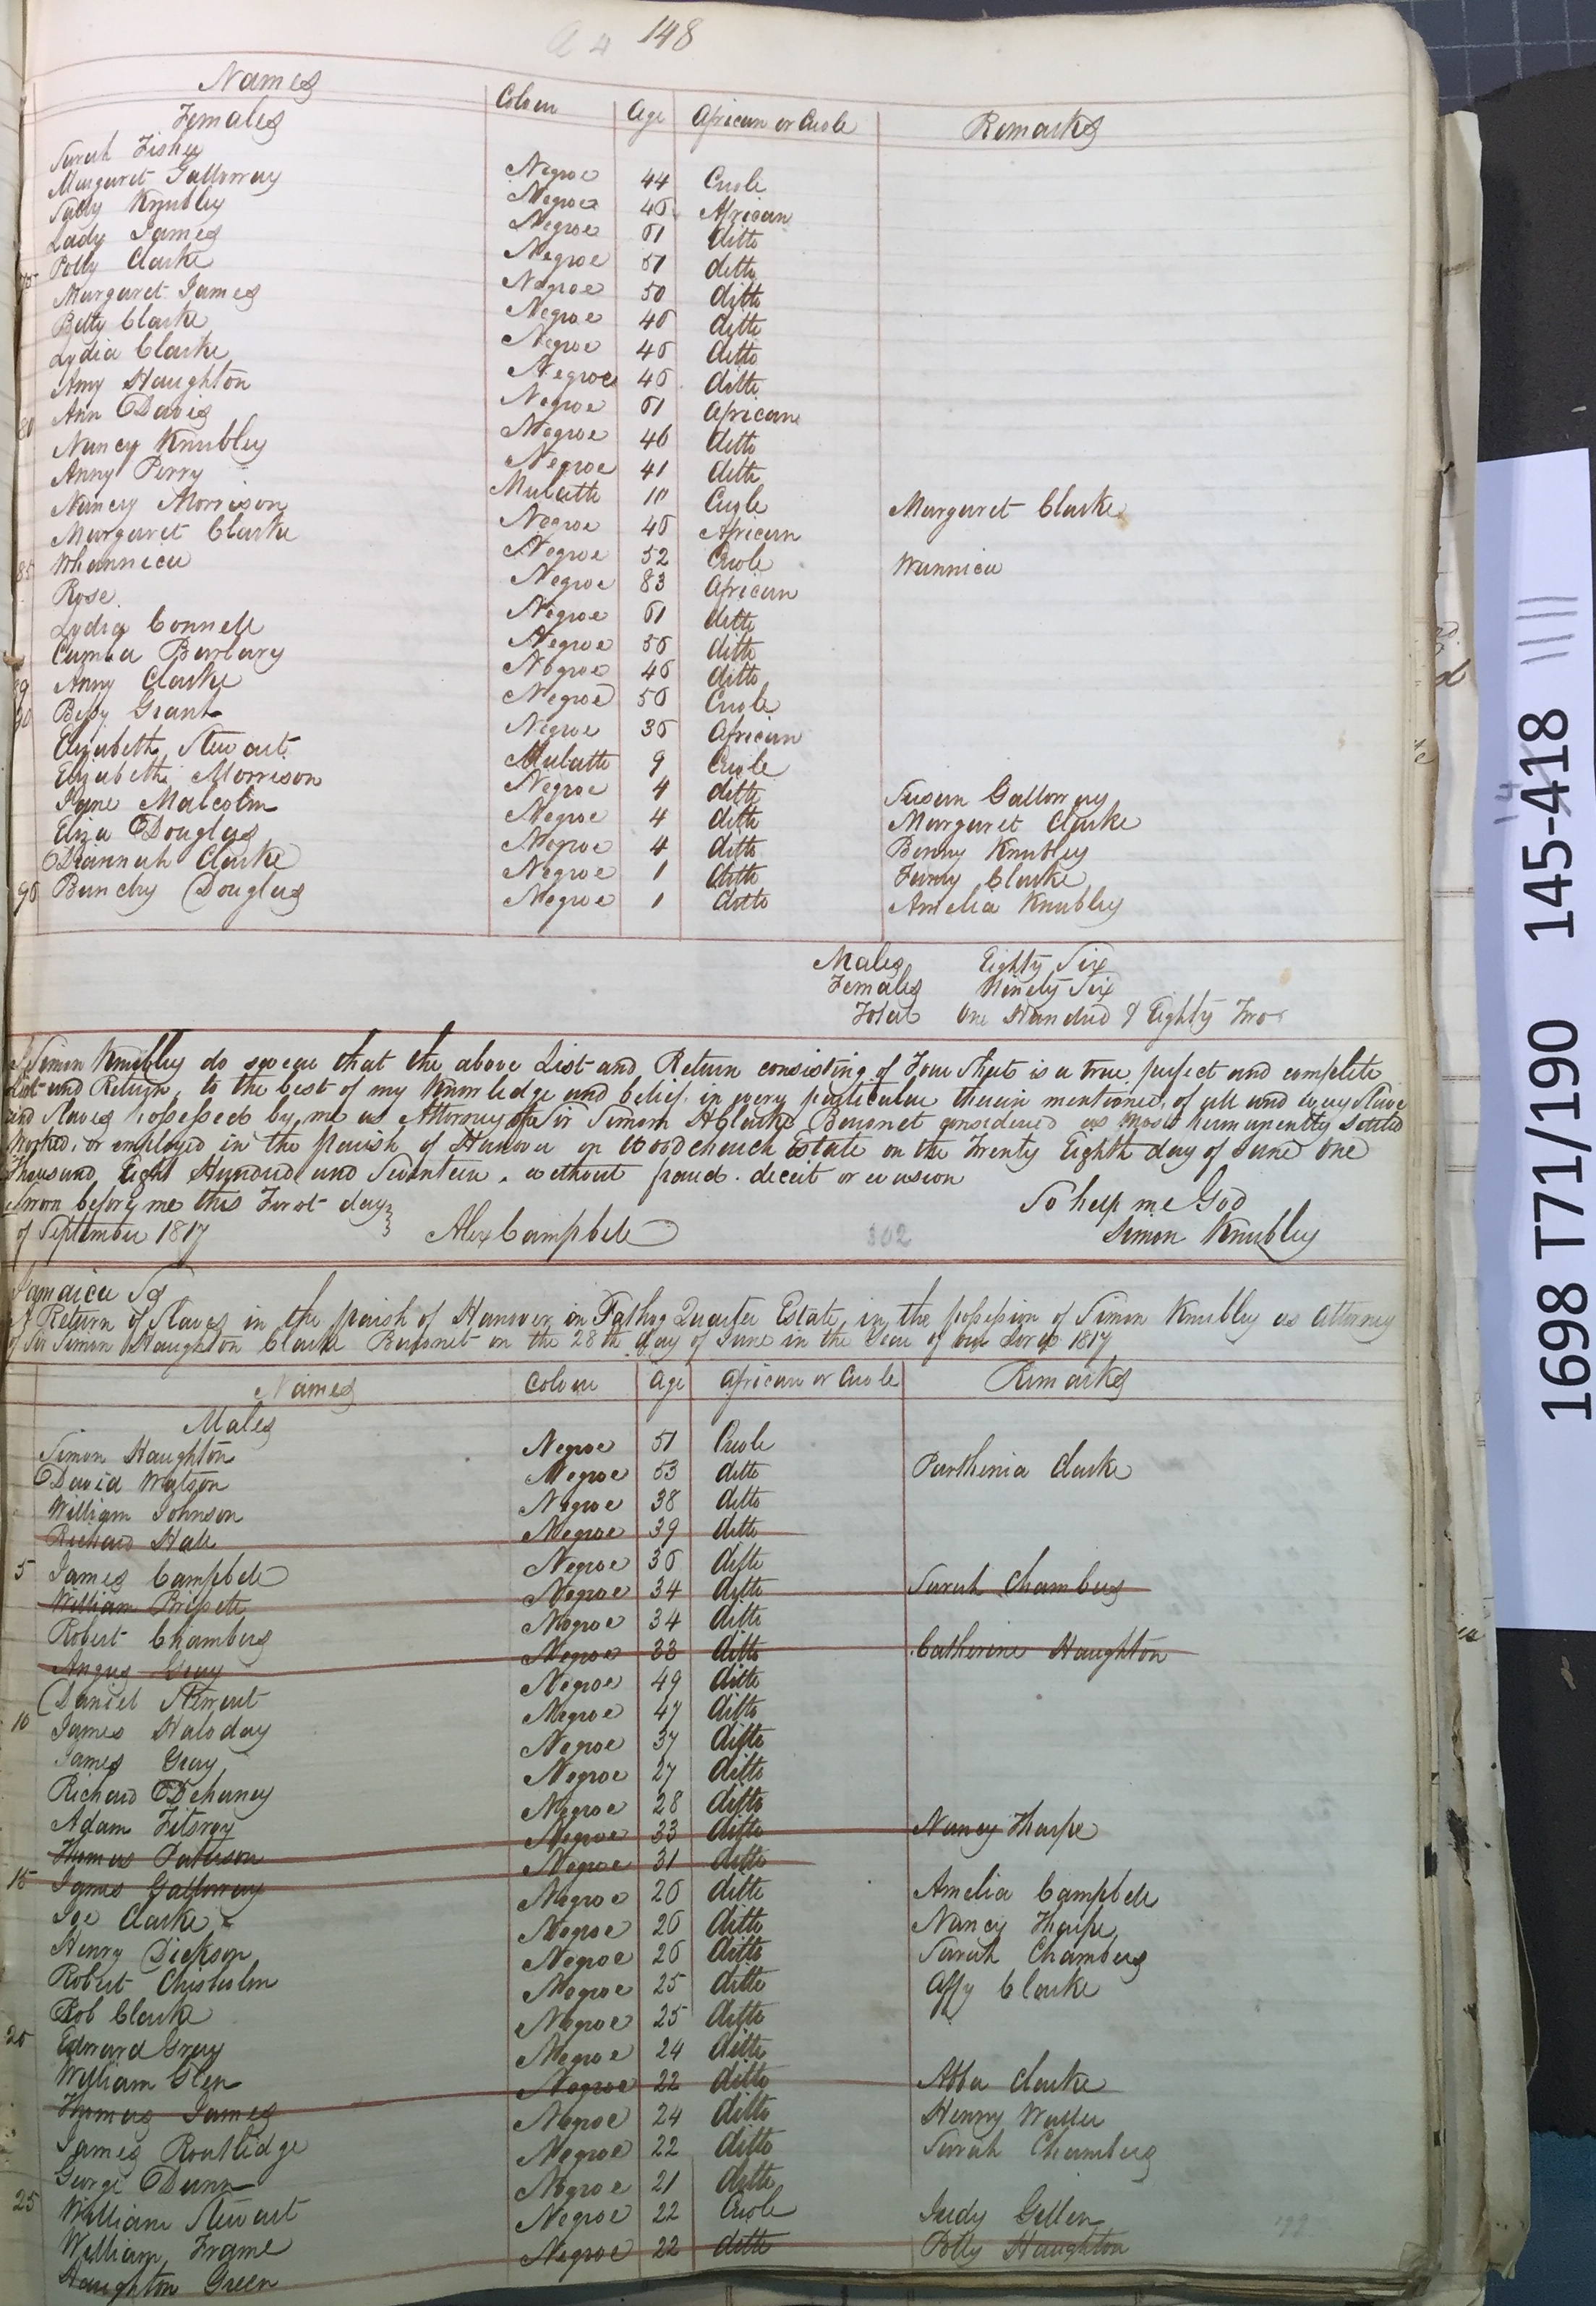 148
Names Colour Age African or Creole Remarks
Females
Sarah Fisher Negroe 44 Creole
Margaret Galloway Negroe 45 African
Sally Knubley Negroe 61 ditto
Lady James Negroe 51 ditto
75 Polly Clarke Negroe 50 ditto
Margaret James Negroe 45 ditto
Betty Clarke Negroe 45 ditto
Lydia Clarke Negroe 45 ditto
Amy Haughton Negroe 61 African
80 Ann Davis Negroe 46 ditto
Nancy Knubley Negroe 41 ditto
Anny Perry Mulatto Creole Margaret Clarke
Nancy Morrison Negroe 45 African
Margaret Clarke Negroe 52 Creole Wannica
85 Whannica Negroe 83 African
Rose Negroe 61 ditto
Lydia Connell Negroe 55 ditto
Cumba Barbary Negroe 45 ditto
89 Anny Clarke Negroe 50 Creole
90 Bessy Grant Negroe 35 African
Elizabeth Stewart Mulatto 9 Creole
Elizabeth Morrison Negroe 4 ditto Susan Galloway
Jane Malcolm Negroe 4 ditto Margaret Clarke
Eliza Douglas Negroe 4 ditto Benny Knubley
Diannah Clarke Negroe 1 ditto Fanny Clarke
96 Bunchy Douglas Negroe 1 ditto Amelia Knubley
Males Eighty Six
Females Ninety Six
Total One Hundred & Eighty Two
I Simon Knubley do swear that the above List and Return consisting of Four Sheets is a true perfect and complete
List and Return, to the best of my knowledge and belief in every particular therein mentioned, of all and every Slave
and Slaves possessed by me as Attorney to Sir Simon H Clarke Baronet considered as most permanently settled
worked, or employed in the parish of Hanover on Woodchurch Estate on the Twenty Eighth day of June One
thousand Eight Hundred and Seventeen, without fraud deceit or evasion
Sworn before me this First day So help me God
of September 1817 Alex Campbell 302 Simon Knubley
Jamaica Ss
A Return of Slaves in the parish of Hanover on Fathog Quarter Estate in the possession of Simon Knubley as Attorney
of Sir Simon Haughton Clarke Baronet on the 28th day of June in the Year of our Lord 1817
Names Colour Age African or Creole Remarks
Males
Simon Haughton Negroe 51 Creole
David Watson Negroe 53 ditto Parthenia Clarke
William Johnson Negroe 38 ditto
Richard Hall Negroe 39 ditto
5 James Campbell Negroe 36 ditto
William Brissett Negroe 34 ditto Sarah Chambers
Robert Chambers Negroe 34 ditto
Angus Gray Negroe 33 ditto Catherine Haughton
Daniel Stewart Negroe 49 ditto
10 James Haloday Negroe 47 ditto
James Gray Negroe 37 ditto
Richard Dehaney Negroe 27 ditto
Adam Fitsroy Negroe 28 ditto
Thomas Paterson Negroe 33 ditto Nancy Tharpe
15 James Galloway Negroe 31 ditto
Joe Clarke Negroe 26 ditto Amelia Campbell
Henry Dickson Negroe 26 ditto Nancy Tharpe
Robert Chisholm Negroe 26 ditto Sarah Chambers
Rob Clarke Negroe 25 ditto Affy Clarke
20 Edward Gray Negroe 25 ditto
William Glen Negroe 24 ditto
Thomas James Negroe 22 ditto Abba Clarke
James Routlidge Negroe 24 ditto Henry Waller
George Dunn Negroe 22 ditto Sarah Chambers
25 William Stewart Negroe 21 ditto
William Frame Negroe 22 Creole Judy Gellen
Haughton Green Negroe 22 ditto Polly Haughton
1698 T71/190 145-418